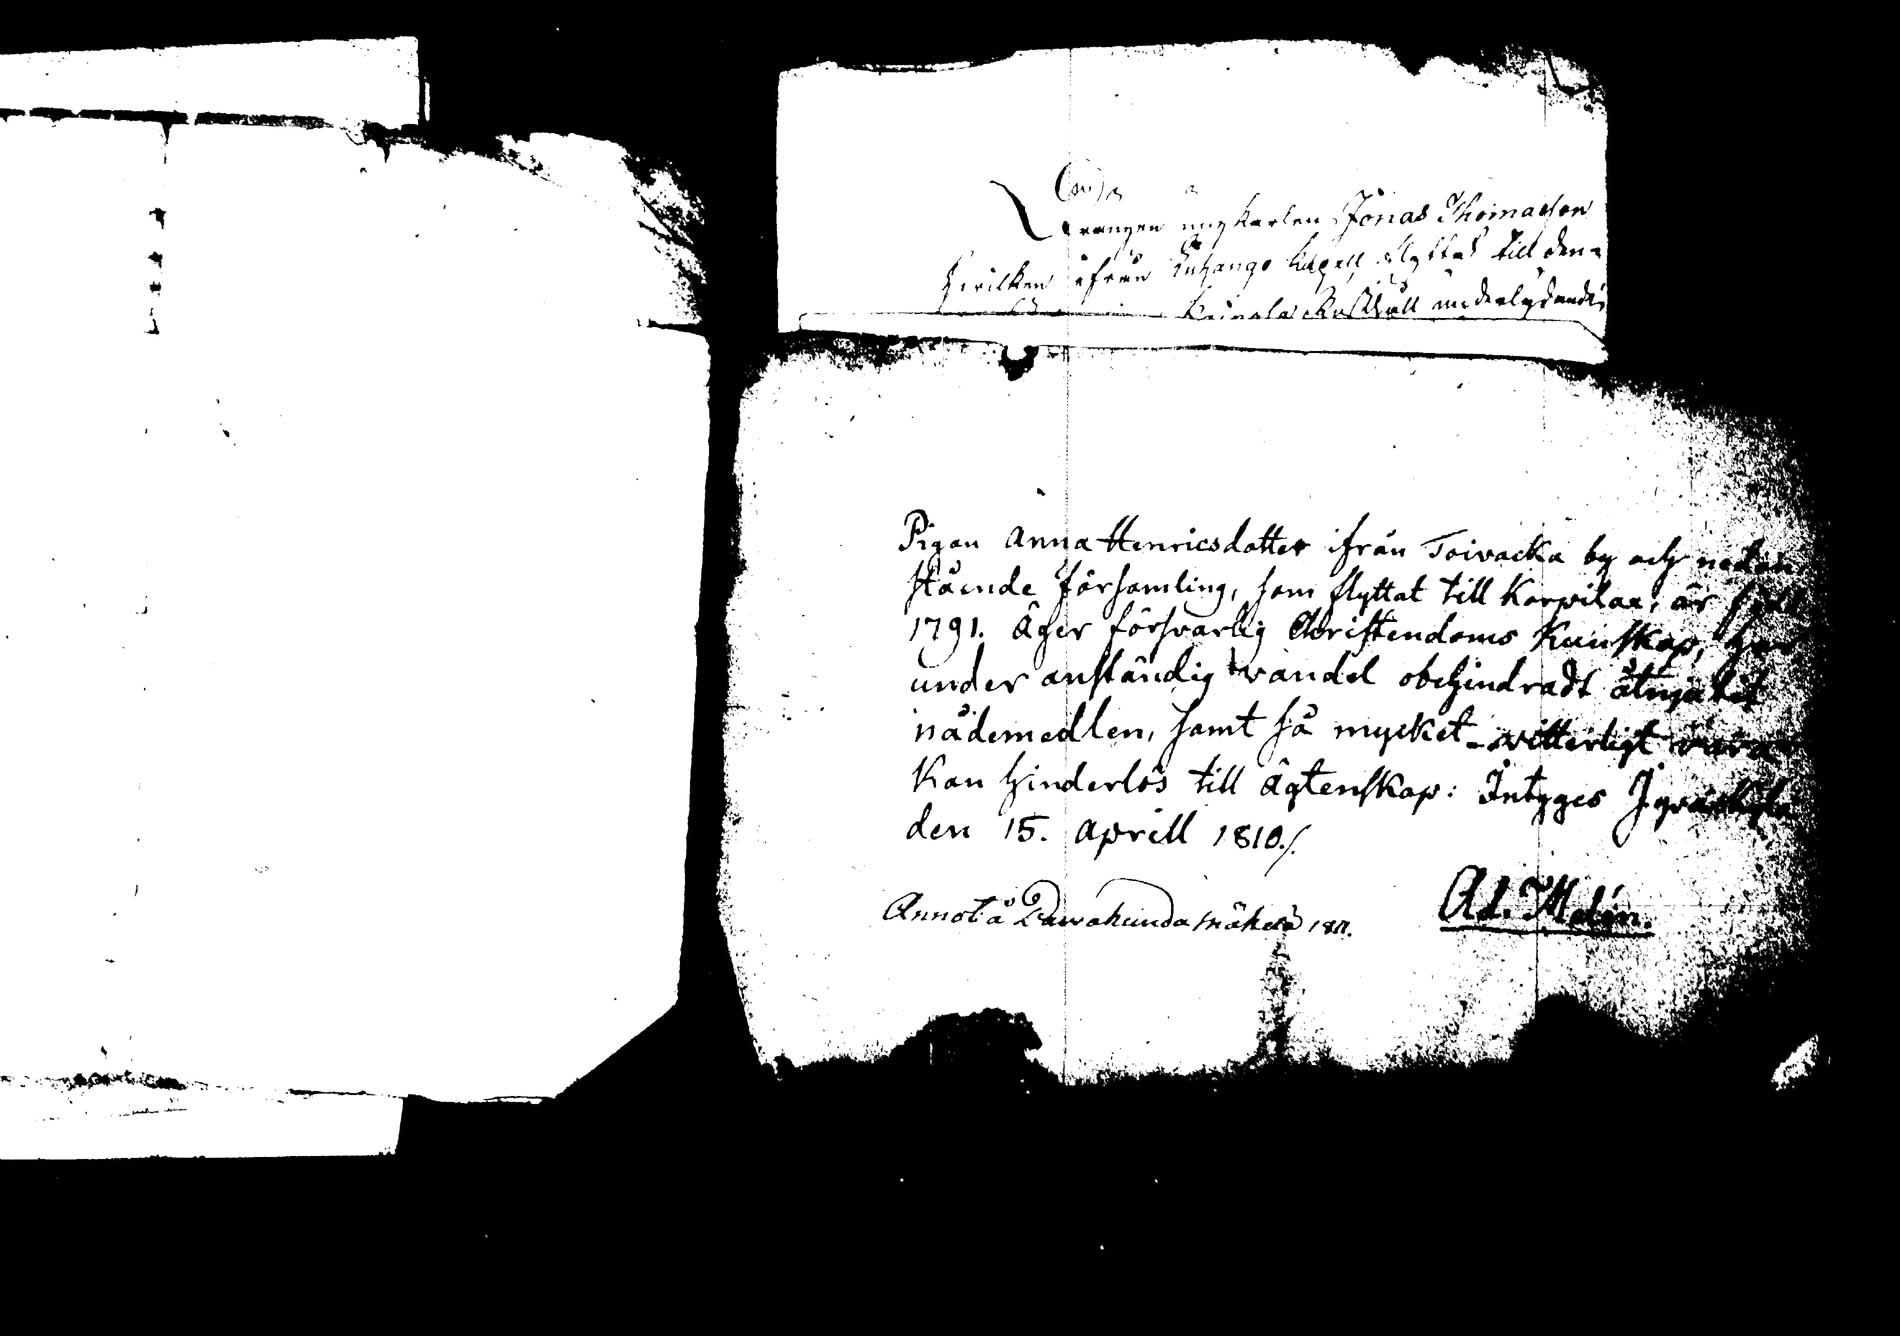 Drängen ungkarlen Jonas Thomasson
hvilken ifrån Kuhango Capell flyttat till den-
underlydande
Pigan Anna Henricsdotter ifrån Toivacka by och nedan
stående församling, som flyttat till Korpilax, är född
1791. Äger försvarlig Christendoms Kunskap, har
under anständig vandel obehindradt åtnjutit
nådemedlen, samt så mycket vitterligt vara
kan hinderlös till ägtenskap: Intyges Jyväskylä
den 15. aprill 1810./.
Annot. å 1811.
Ad. Melén.